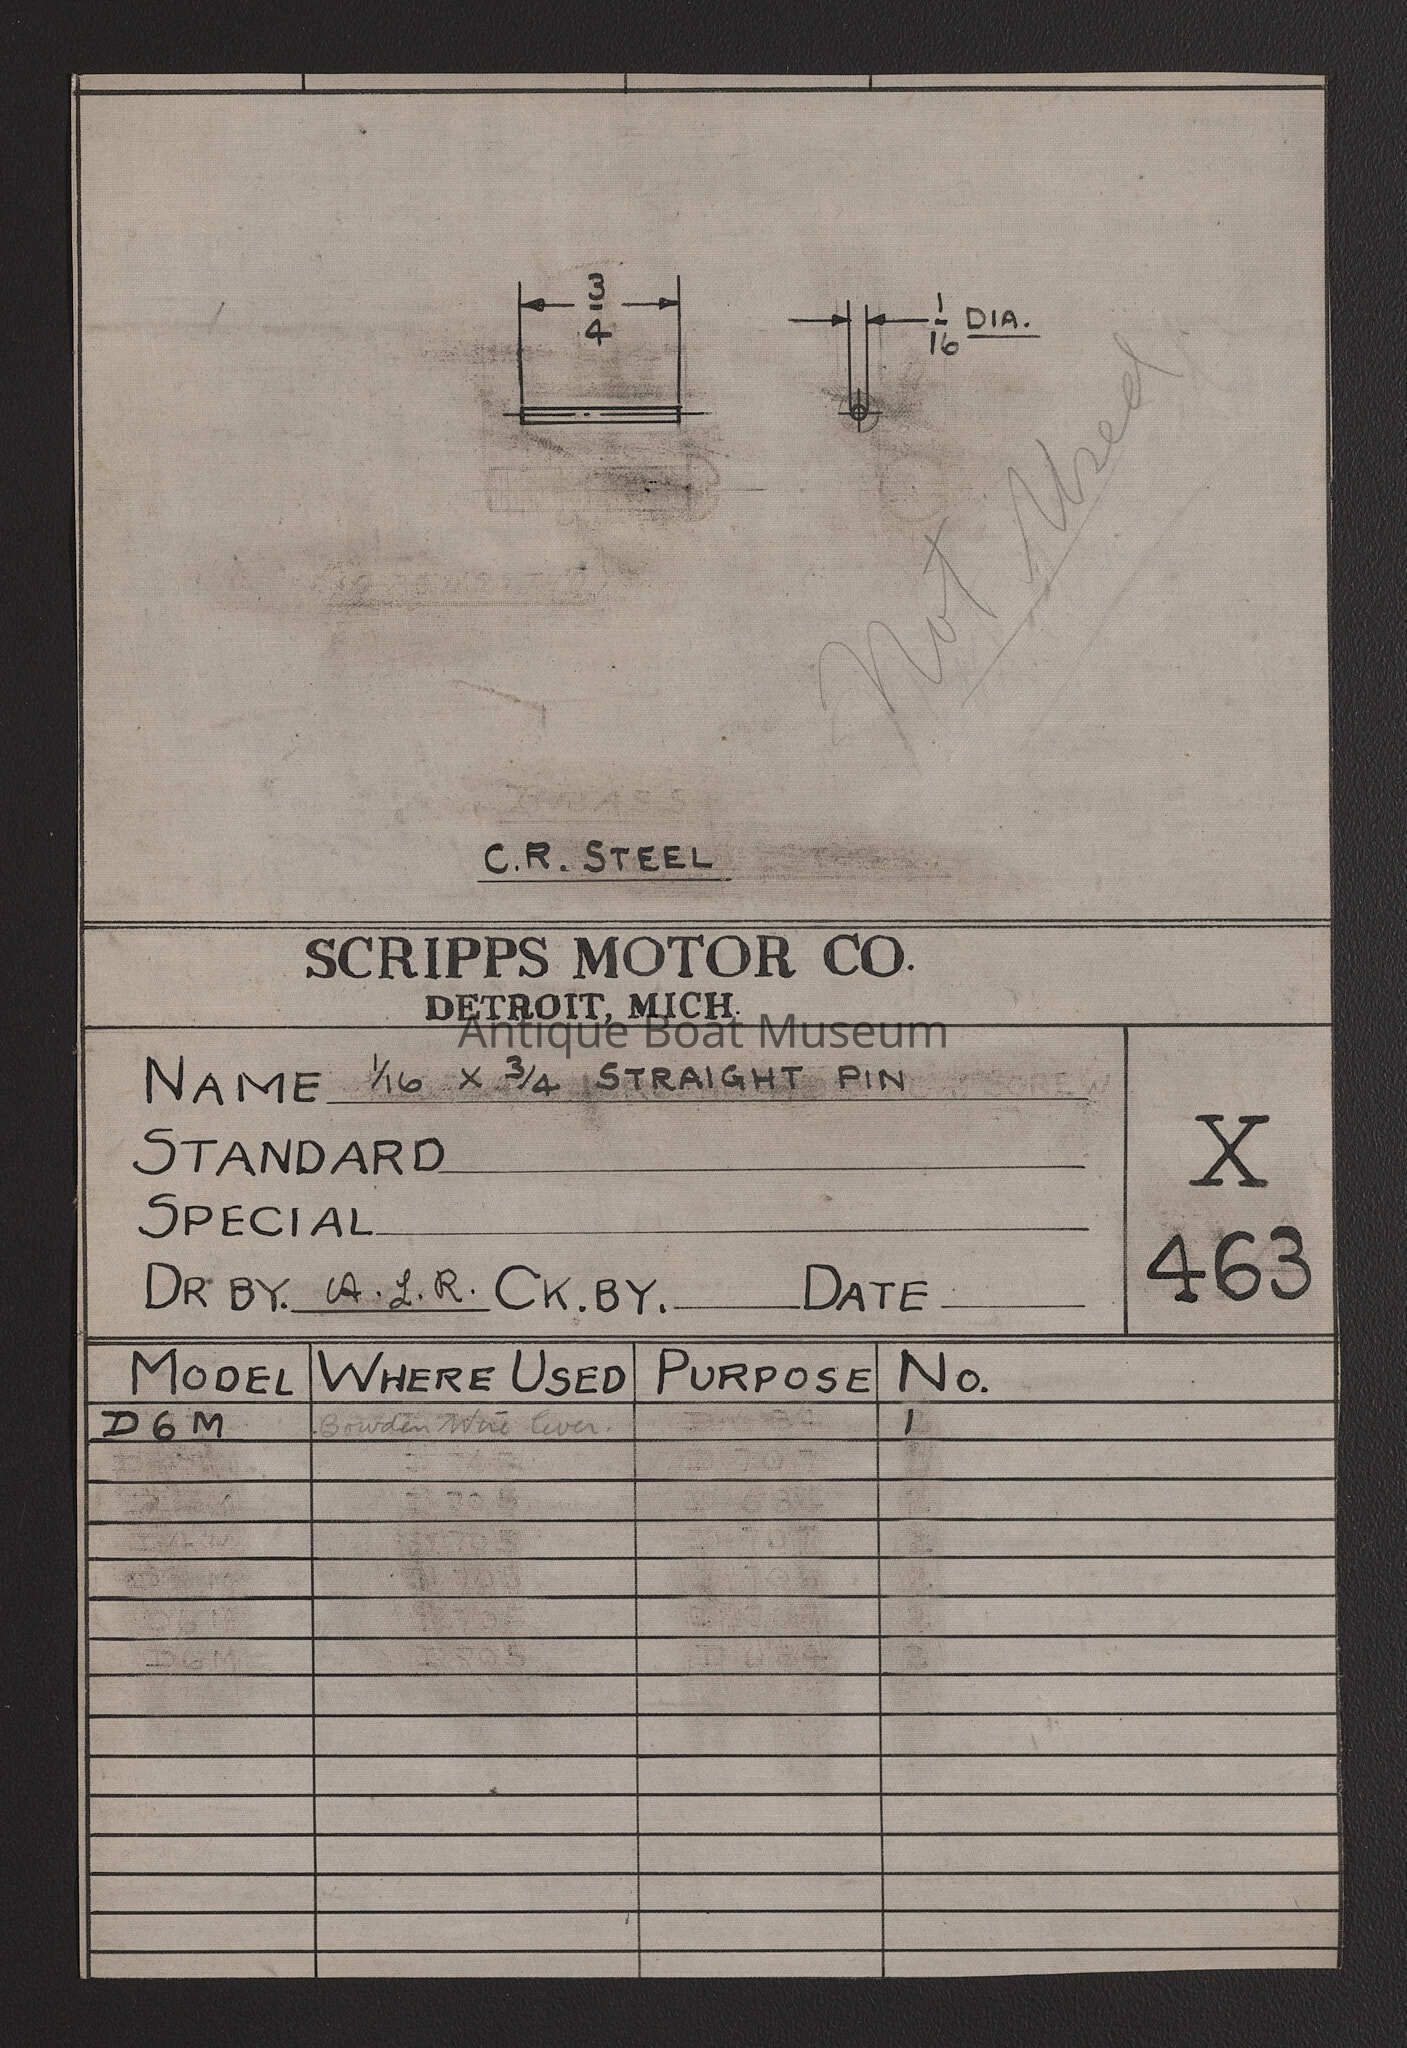 3/4
1/16 DIA.
Not Used
C.R. STEEL
SCRIPPS MOTOR CO.
DETROIT, MICH.
Antique Boat Museum
NAME 1/16 X 3/4 STRAIGHT PIN
STANDARD
SPECIAL
DR BY. A.L.R. CK. BY. DATE
X
463
MODEL WHERE USED PURPOSE NO.
D6M Bowden Wire lever. 1